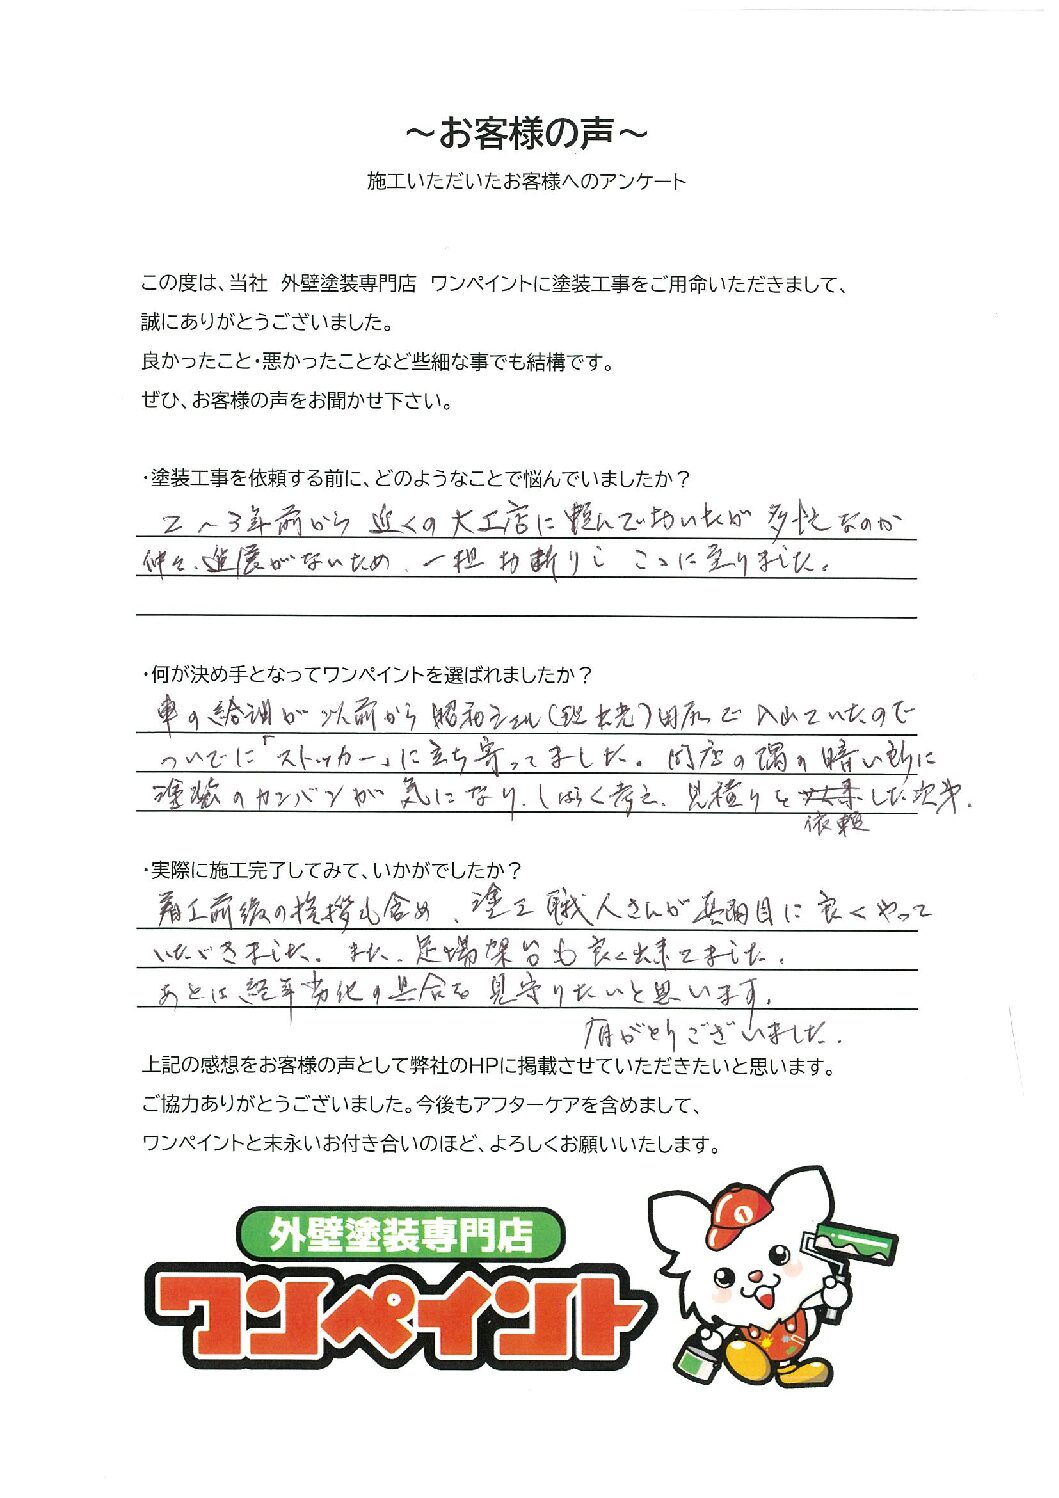 ～お客様の声～
施工いただいたお客様へのアンケート
この度は、当社　外壁塗装専門店　ワンペイントに塗装工事をご用命いただきまして、
誠にありがとうございました。
良かったこと・悪かったことなど些細な事でも結構です。
ぜひ、お客様の声をお聞かせ下さい。
・塗装工事を依頼する前に、どのようなことで悩んでいましたか？
2～3年前から 近くの大工店に頼んで が 多忙なのか
仲々、進展がないため、一担お断りし ここに至りました。
・何が決め手となってワンペイントを選ばれましたか？
車の給油が以前から昭和シェル(現出光) で 入れていたので
ついでに「ストッカー」に立ち寄ってました。同店の隅の暗い所に
塗装のカンバンが気になり、しばらく考え、見積りを した次第。
依頼
・実際に施工完了してみて、いかがでしたか？
着工前後の挨拶も含め、塗工職人さんが真面目に良くやって
いただきました。また、足場架台も良く出来てました。
あとは経年劣化の具合を見守りたいと思います。
有がとうございました。
上記の感想をお客様の声として弊社のHPに掲載させていただきたいと思います。
ご協力ありがとうございました。今後もアフターケアを含めまして、
ワンペイントと末永いお付き合いのほど、よろしくお願いいたします。
外壁塗装専門店
ワンペイント
1